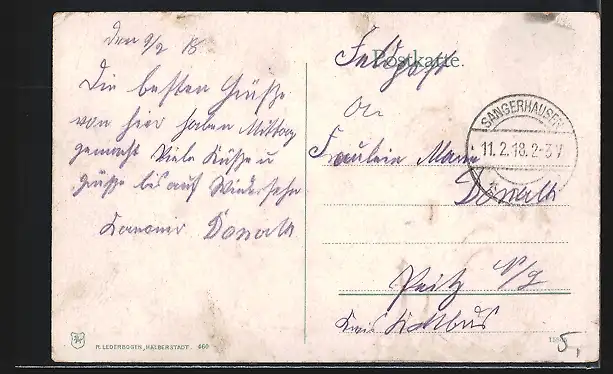 den 9/2 18
Die besten Grüße
von hier haben Mittag
gemacht Viele Küsse u
Grüße bis auf Wiedersehn
Kanonir Donath
Postkarte.
Feldpost
An
Fräulein Marie
Donath
Peitz N/L
Kreis Kottbus
SANGERHAUSEN
11.2.18.2-3V
R. LEDERBOGEN, HALBERSTADT. 460
5,